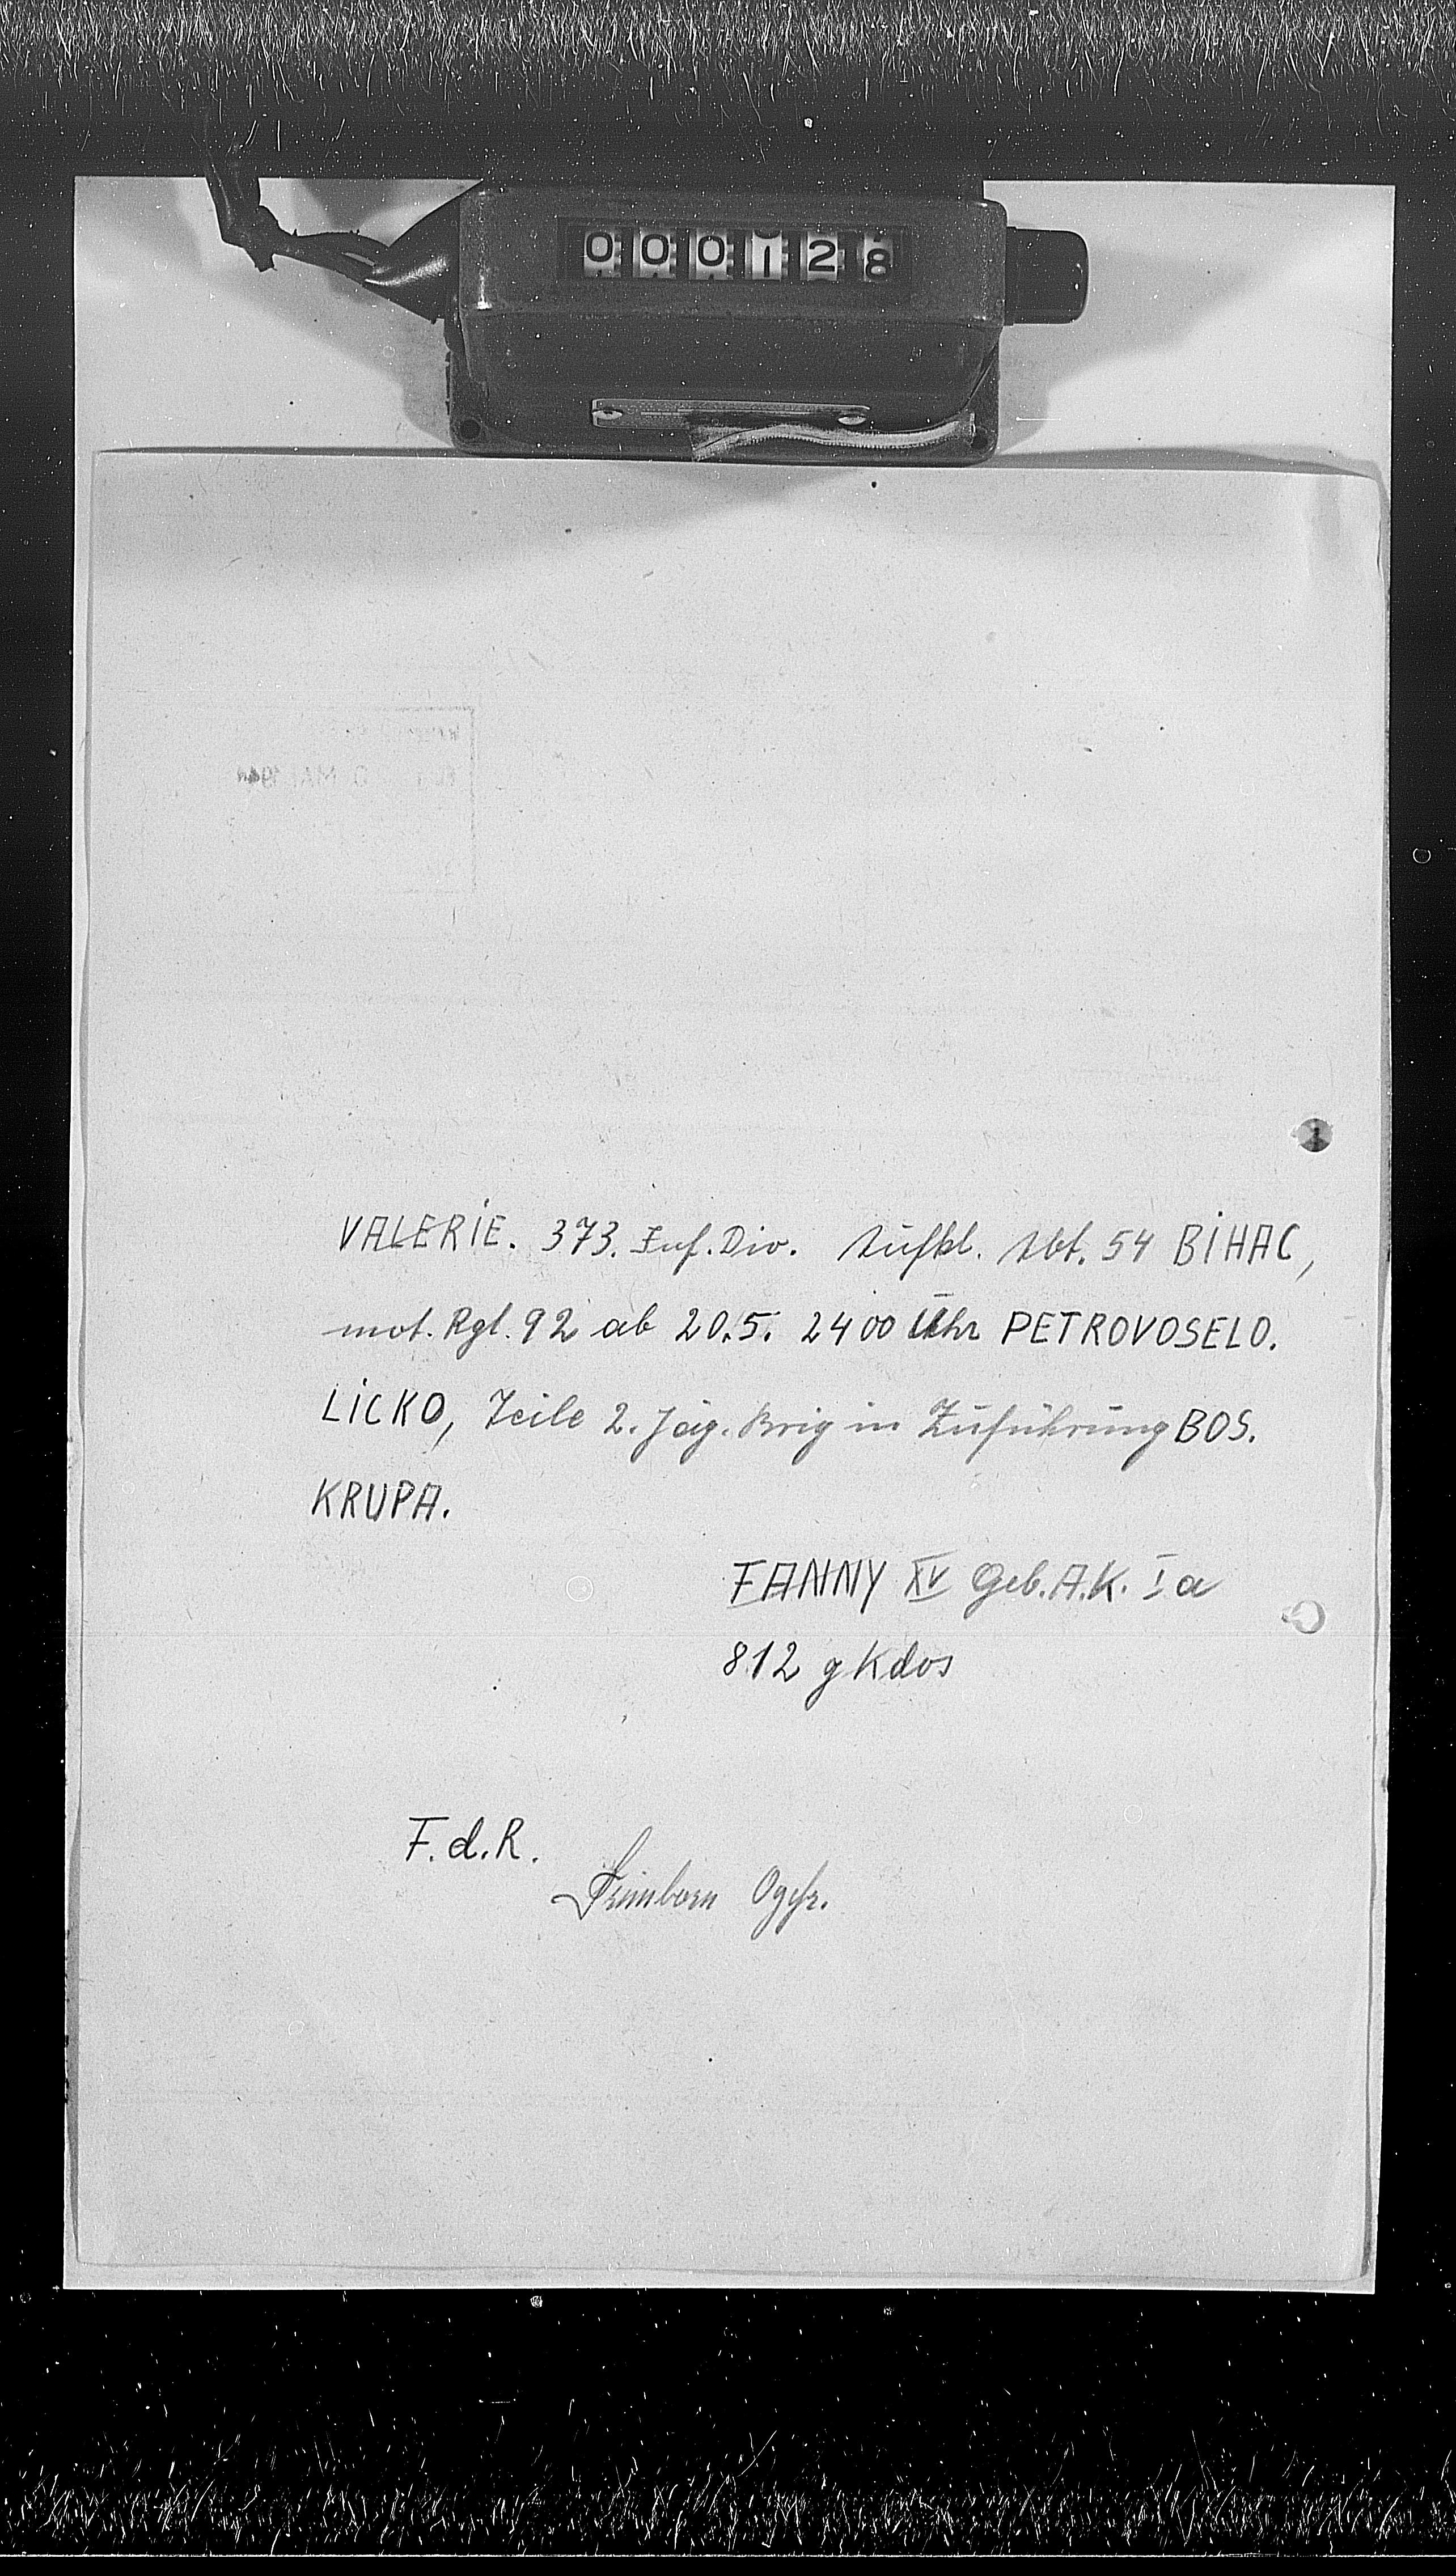 000128
VALERIE. 373. Inf. Div. Aufkl. Abt. 54 BIHAC,
mot. Rgt. 92 ab 20.5. 2400 Uhr PETROVOSELO.
LICKO, Teile 2. Jäg. Brig in Zuführung BOS.
KRUPA.
FANNY XV Geb. A.K. Ia
812 g Kdos
F.d.R.
Ogefr.